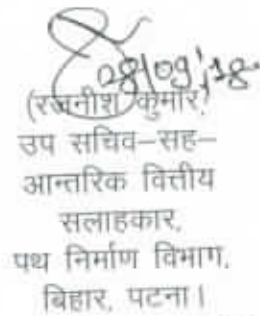 28/09/18
(रजनीश कुमार)
उप सचिव–सह–
आन्तरिक वित्तीय
सलाहकार,
पथ निर्माण विभाग,
बिहार, पटना।